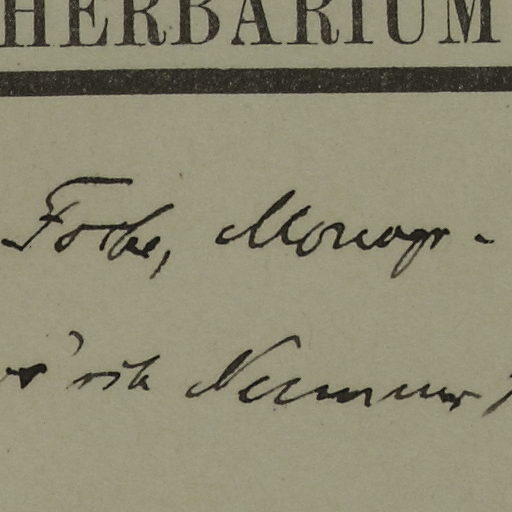 HERBARIUM
Focke, Monogr.
Nummer